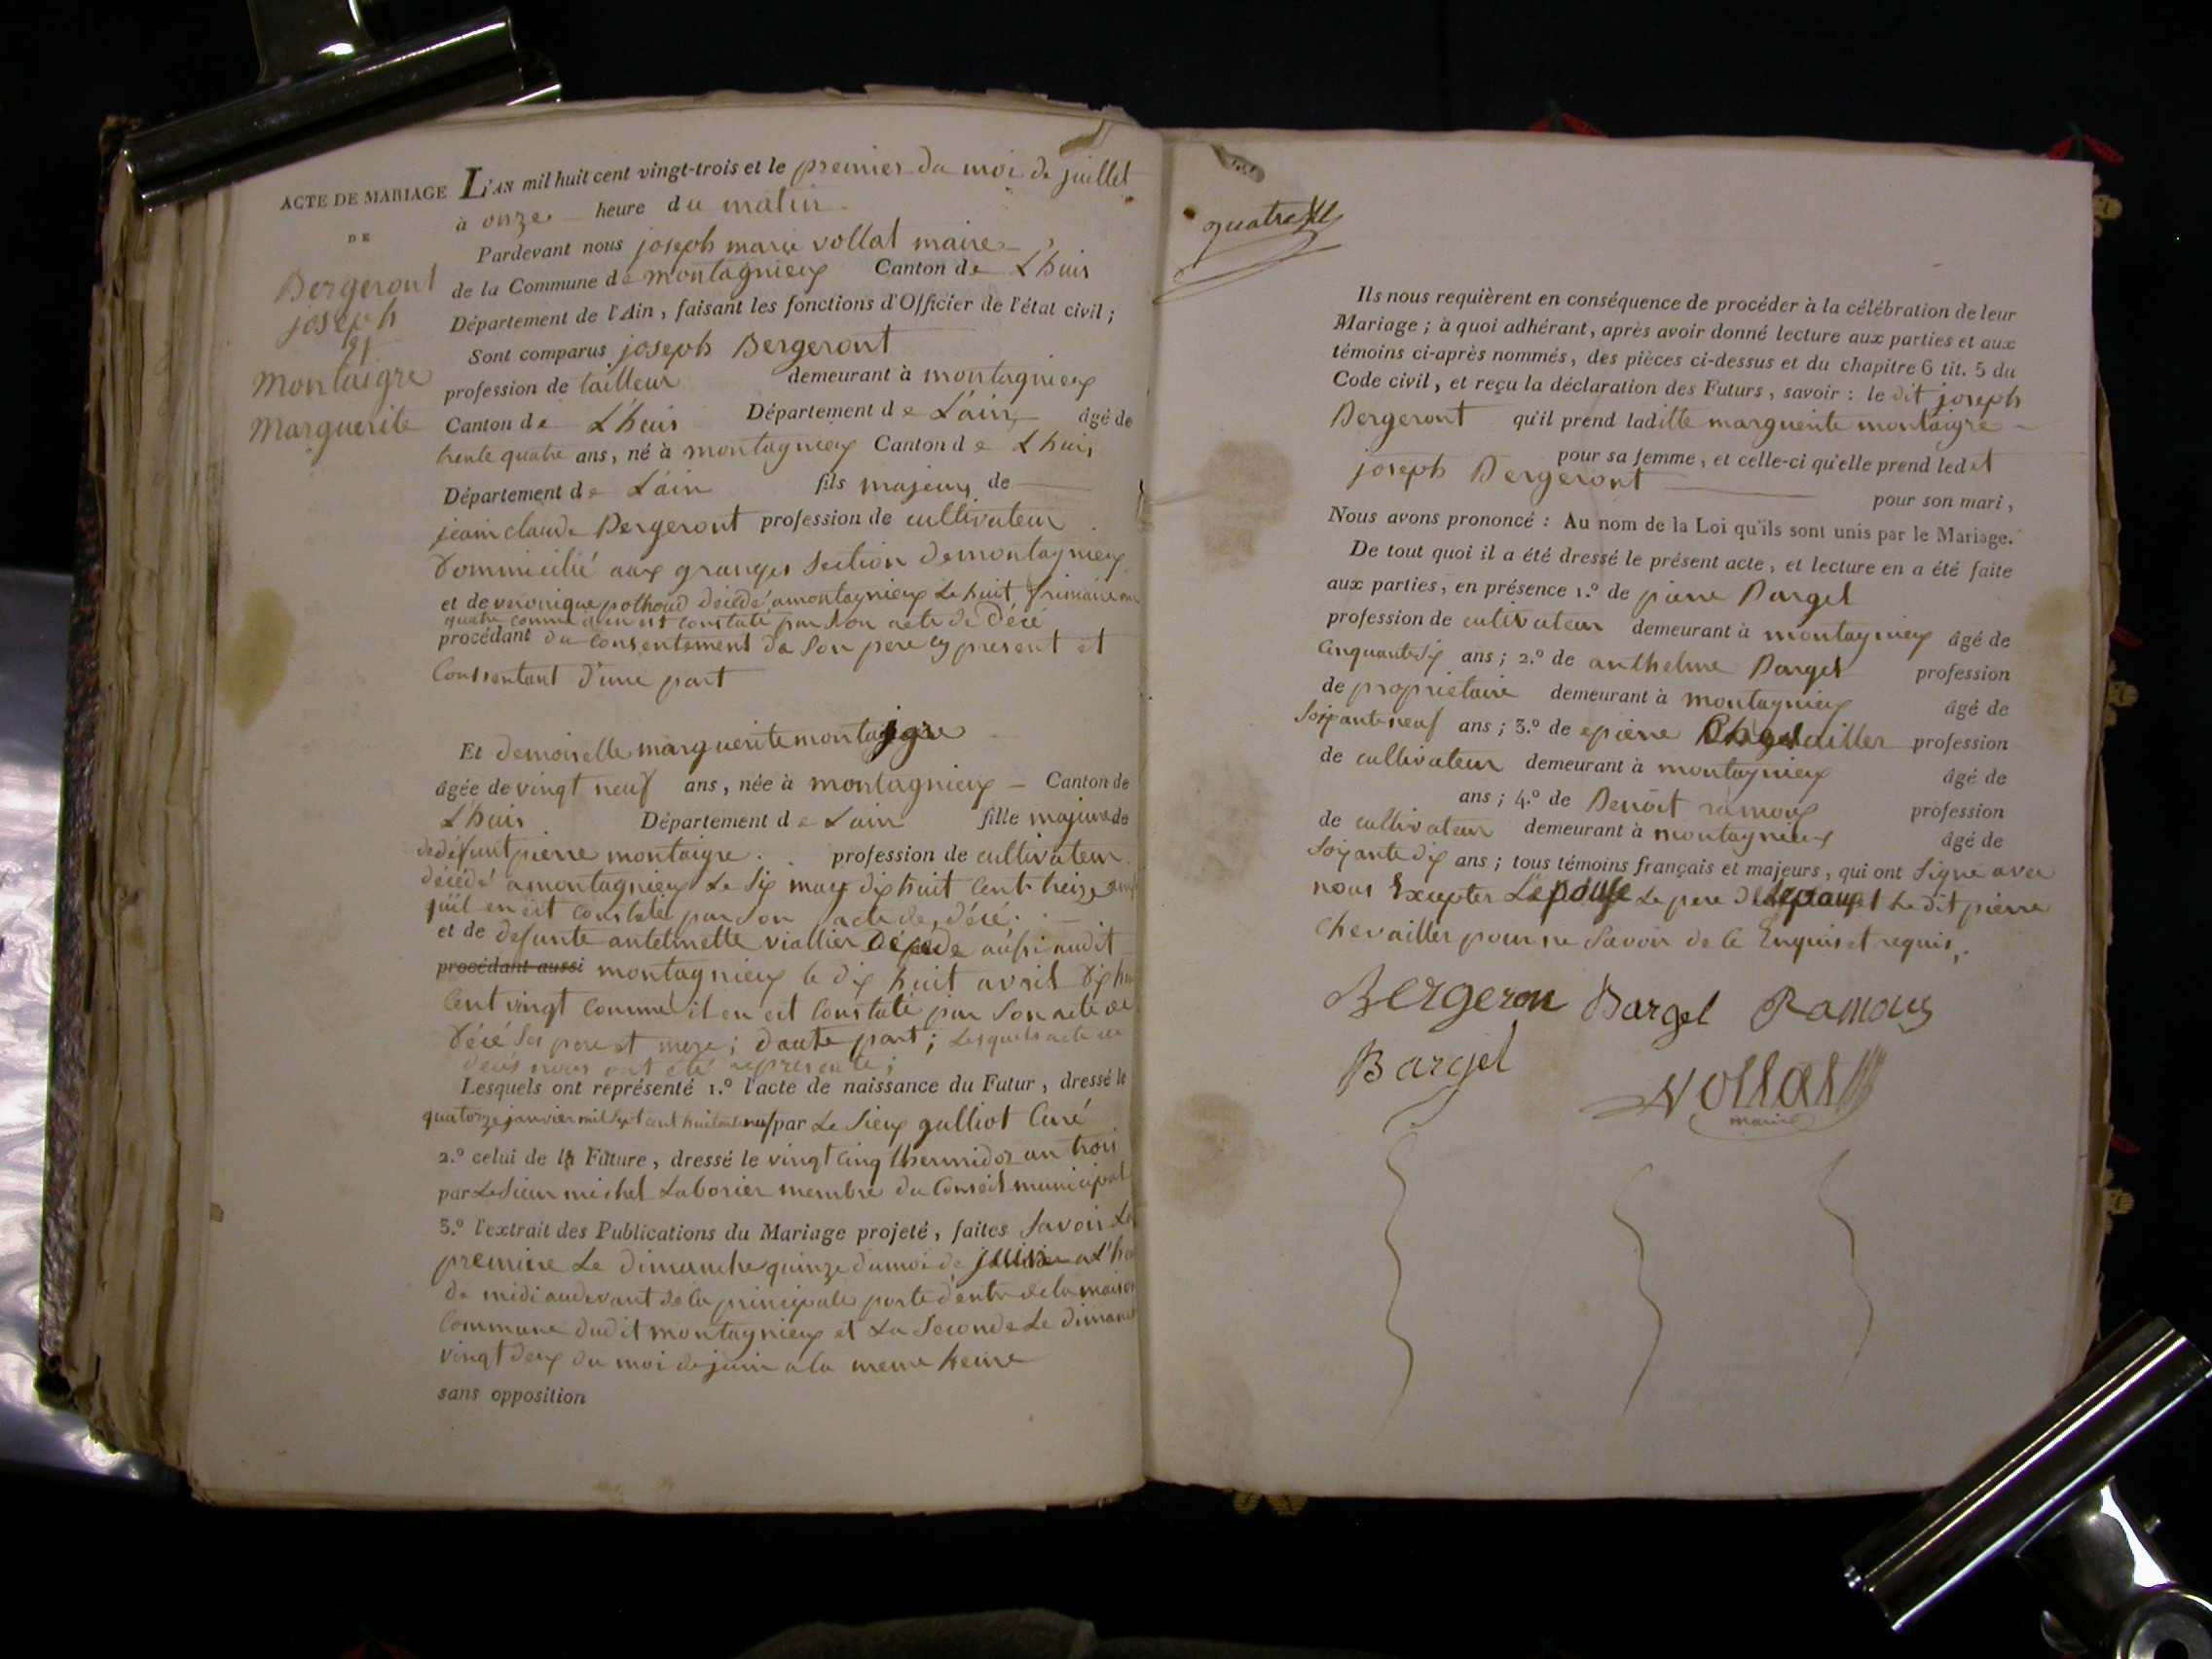 ACTE DE MARIAGE
DE
Bergeront
joseph
et
montaigre
Marguerite
L'AN mil huit cent vingt-trois et le premier du moi de juillet
à onze heure du matin
Pardevant nous joseph marie vollat maire
de la Commune de montagnieux Canton de Lhuis
Département de l'Ain, faisant les fonctions d'Officier de l'état civil;
Sont comparus joseph Bergeront
profession de tailleur demeurant à montagnieux
Canton de L'huis Département de L'ain âgé de
trente quatre ans, né à montagnieux Canton de Lhuis
Département de L'ain fils majeur de
jean claude Bergeront profession de cultivateur
dommicilié aux granges section de montagnieux
et de veronique pothoud décédé a montagnieux Le huit frimaire an
quatre comme il en est constaté par son acte de décé
procédant du consentement de son pere cy present et
Consentant d'une part
Et demoiselle marguerite montaigre
âgée de vingt neuf ans, née à montagnieux Canton de
L'huis Département de Lain fille majeure de
de défunt pierre montaigre profession de cultivateur
décédé a montagnieux Le six may dix huit Cent treize
qu'il en est constaté par son acte de décé.
et de defunte antelmette viallier décédé aussi audit
procédant aussi montagnieux le dix huit avril dix huit
Cent vingt comme il en est constaté par son acte de
décé ses pere et mere; d'aute part; Lesquels acte de
décès nous ont été représenté;
Lesquels ont représenté 1.º l'acte de naissance du Futur, dressé le
quatorze janvier mil sept cent huitante neuf par Le Sieur galliot Curé
2.º celui de la Future, dressé le vingt cinq thermidor an trois
par Le Sieur michel Laborier membre du Conseil municipal
3.º l'extrait des Publications du Mariage projeté, faites Savoir La
premiere Le dimanche quinze du moi de juin a L'heure
de midi audevant de la principale porte d'entré de la maison
Commune dudit montagnieux et La Seconde Le dimanche
vingt deux du moi de juin a la meme heure
sans opposition
Ils nous requièrent en conséquence de procéder à la célébration de leur
Mariage; à quoi adhérant, après avoir donné lecture aux parties et aux
témoins ci-après nommés, des pièces ci-dessus et du chapitre 6 tit. 5 du
Code civil, et reçu la déclaration des Futurs, savoir: le dit joseph
Bergeront qu'il prend laditte marguerite montaigre
pour sa femme, et celle-ci qu'elle prend ledet
joseph Bergeront pour son mari,
Nous avons prononcé: Au nom de la Loi qu'ils sont unis par le Mariage.
De tout quoi il a été dressé le présent acte, et lecture en a été faite
aux parties, en présence 1.º de pierre Bargel
profession de cultivateur demeurant à montagnieux âgé de
Cinquante six ans; 2.º de anthelme Bargel profession
de proprietaire demeurant à montagnieux âgé de
soixante neuf ans; 3.º de pierre profession
de cultivateur demeurant à montagnieux âgé de
ans; 4.º de Benoit ramoux profession
de cultivateur demeurant à montagnieux âgé de
Soixante dix ans; tous témoins français et majeurs, qui ont Signé avec
nous Excepter L'epouse Le pere de L'epoux et Le dit pierre
Chevailler pour ne Savoir de ce Enquis et requis.
Bergeron Bargel Ramoux
Bargel Vollat
maire